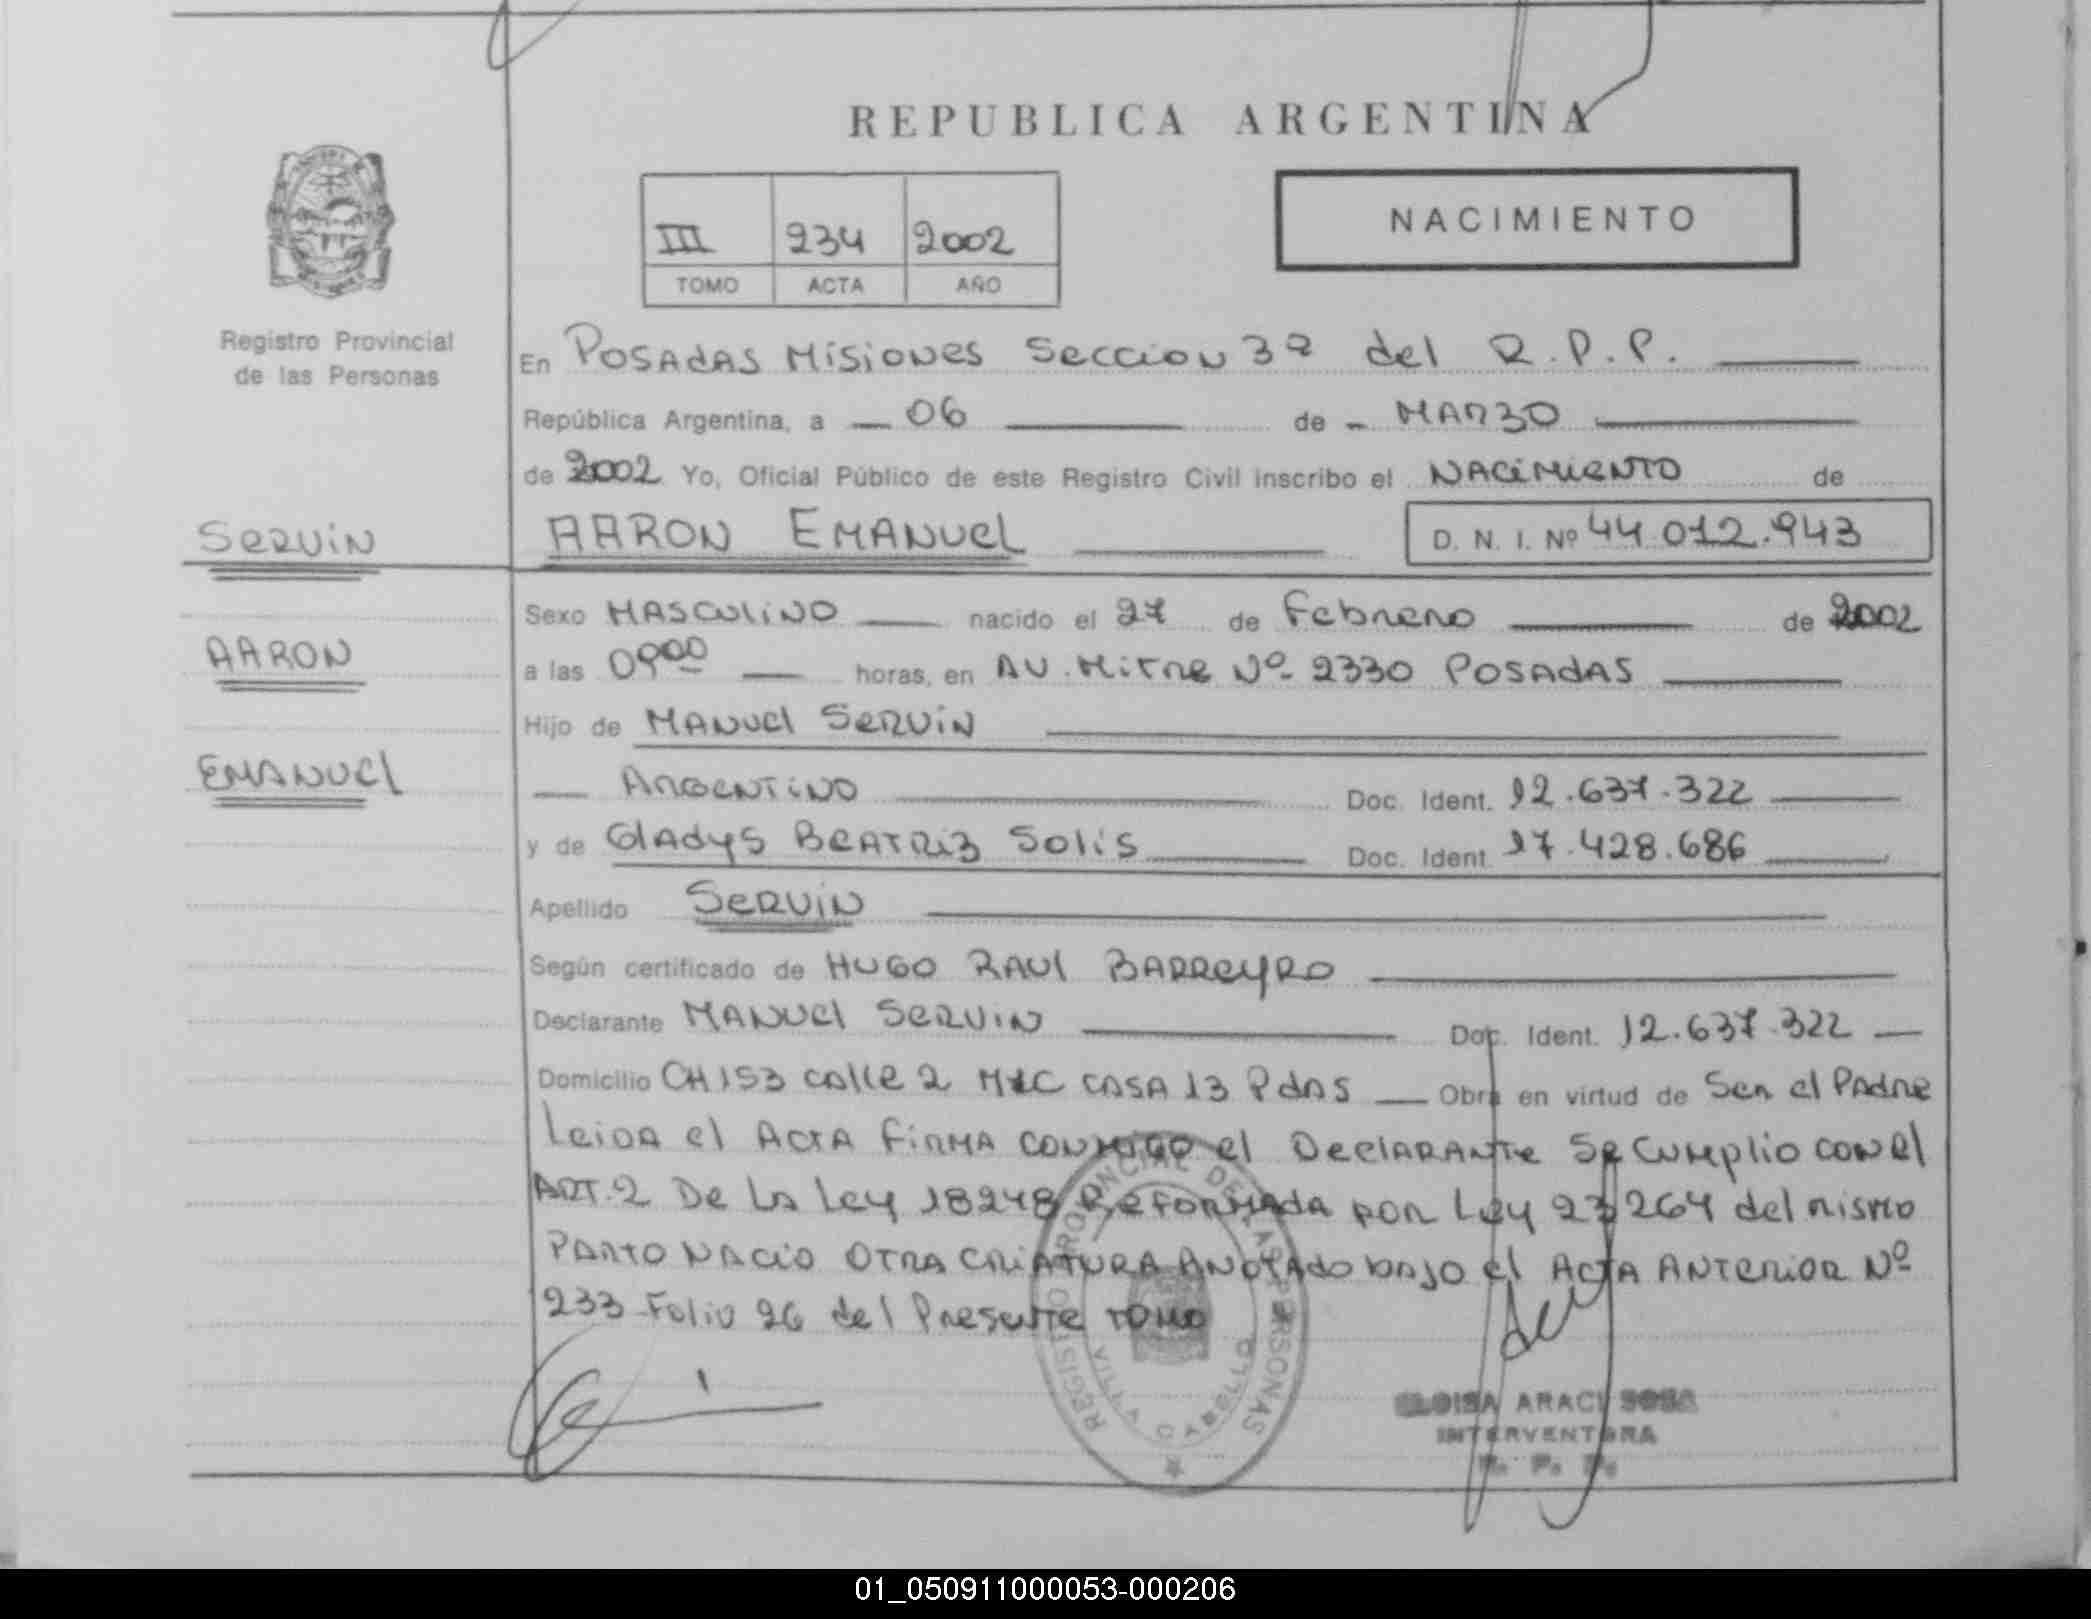 REPUBLICA ARGENTINA
III 234 2002
TOMO ACTA AÑO
NACIMIENTO
Registro Provincial
de las Personas
En POSADAS MISIONES SECCION 3ª del R.P.P.
República Argentina, a 06 de MARZO
de 2002 Yo, Oficial Público de este Registro Civil inscribo el NACIMIENTO de
SERVIN
AARON EMANUEL D. N. I. Nº 44.012.943
Sexo MASCULINO nacido el 27 de Febrero de 2002
AARON
a las 09⁰⁰ horas, en AV. Mitre Nº 2330 POSADAS
Hijo de MANUEL SERVIN
EMANUEL
ARGENTINO Doc. Ident. 12.637.322
y de GLADYS BEATRIZ SOLIS Doc. Ident. 17.428.686
Apellido SERVIN
Según certificado de HUGO RAUL BARREYRO
Declarante MANUEL SERVIN Doc. Ident. 12.637.322
Domicilio CH 153 calle 2 CASA 13 Pdas Obra en virtud de Ser el Padre
Leida el ACTA FIRMA CONMIGO el DECLARANTE Se Cumplio con el
ART. 2 De La Ley 18248 Reformada por Ley 23264 del mismo
PARTO NACIO OTRA CRIATURA ANOTADO bajo el ACTA ANTERIOR Nº
233 Folio 26 del Presente TOMO
REGISTRO PROVINCIAL DE LAS PERSONAS
VILLA CABELLO
ELOISA ARACI SOSA
INTERVENTORA
R. P. P.
01_050911000053-000206